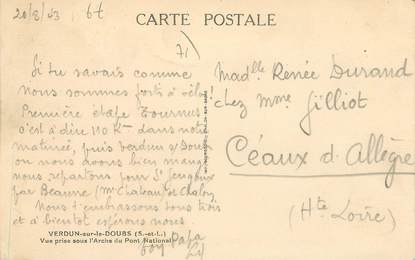 20/8/43 6t
CARTE POSTALE
71)
Si tu savais comme
nous sommes forts à vélo!
Première étape Tournus
c'est à dire 110 Km dans notre
matinée, puis Verdun s/ Doubs
où nous avons bien mangé
nous repartons pour St Gengoux
par Beaune (
Nous t'embrassons tous trois
et à bientôt espérons nous.
Papa
Madlle Renée Durand
chez Mme Gilliot
Céaux d'Allègre
(Hte Loire)
VERDUN-sur-le-DOUBS (S.-et-L.)
Vue prise sous l'Arche du Pont National